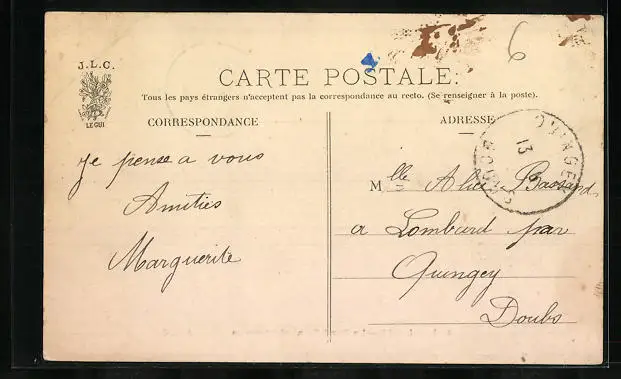 6
J.L.C.
LE GUI
CARTE POSTALE
Tous les pays étrangers n'acceptent pas la correspondance au recto. (Se renseigner à la poste).
CORRESPONDANCE
ADRESSE
QUINGEY
DOUBS
13
Je pense a vous
Amitiés
Marguerite
Mlle Alice Bassand
a Lombard par
Quingey
Doubs